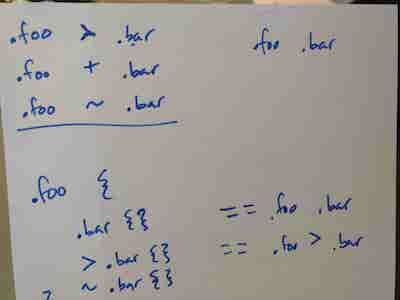 .foo > .bar
.foo .bar
.foo + .bar
.foo ~ .bar
.foo {
.bar {}
== .foo .bar
> .bar {}
== .foo > .bar
~ .bar {}
}